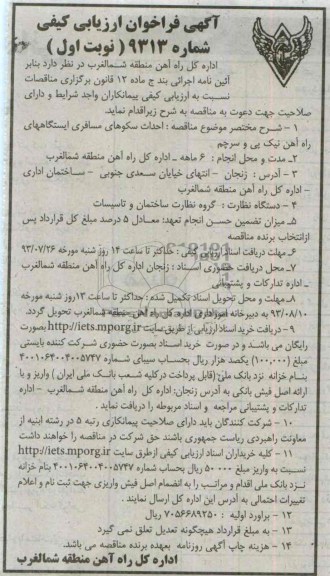 آگهی فراخوان ارزیابی کیفی
شماره ۹۳۱۳ ( نوبت اول )
اداره کل راه آهن منطقه شمالغرب در نظر دارد بنابر
آئین نامه اجرائی بند ج ماده ۱۲ قانون برگزاری مناقصات
نسبت به ارزیابی کیفی پیمانکاران واجد شرایط و دارای
صلاحیت جهت دعوت به مناقصه به شرح زیر اقدام نماید.
۱ - شرح مختصر موضوع مناقصه : احداث سکوهای مسافری ایستگاههای
راه آهن نیک پی و سرچم
۲ـ مدت و محل انجام : ۶ ماهه ـ اداره کل راه آهن منطقه شمالغرب
۳ - آدرس : زنجان - انتهای خیابان سعدی جنوبی - ساختمان اداری
- اداره کل راه آهن منطقه شمالغرب
۴ - دستگاه نظارت : گروه نظارت ساختمان و تاسیسات
۵ـ میزان تضمین حسن انجام تعهد: معادل ۵ درصد مبلغ کل قرارداد پس
از انتخاب برنده مناقصه
۶ـ مهلت دریافت اسناد ارزیابی کیفی : حداکثر تا ساعت ۱۴ روز شنبه مورخه ۹۳/۰۷/۲۶
۷ـ محل دریافت حضوری اسناد : زنجان اداره کل راه آهن منطقه شمالغرب
ـ اداره تدارکات و پشتیبانی
۸ـ مهلت و محل تحویل اسناد تکمیل شده : حداکثر تا ساعت ۱۳ روز شنبه مورخه
۹۳/۰۸/۱۰ به دبیرخانه اداره کل راه آهن منطقه شمالغرب تحویل گردد.
۹ - دریافت خرید اسناد ارزیابی از طریق سایت http://iets.mporg.ir بصورت
رایگان می باشد و در صورت خرید اسناد بصورت حضوری شرکت کننده بایستی
مبلغ (۱۰۰,۰۰۰) یکصد هزار ریال بحساب سیبای شماره ۴۰۰۱۰۶۴۰۰۴۰۰۵۷۴۷
بنام خزانه نزد بانک ملی (قابل پرداخت در کلیه شعب بانک ملی ایران ) واریز و با
ارائه اصل فیش بانکی به آدرس زنجان: اداره کل راه آهن منطقه شمالغرب - اداره
تدارکات و پشتیبانی مراجعه و اسناد مربوطه را دریافت نماید .
۱۰ - شرکت کنندگان باید دارای صلاحیت پیمانکاری رتبه ۵ در رشته ابنیه از
معاونت راهبردی ریاست جمهوری باشند حق شرکت در مناقصه را خواهند داشت
۱۱ - کلیه خریداران اسناد ارزیابی کیفی از طریق سایت http://iets.mporg.ir
نسبت به واریز مبلغ ۵۰۰۰۰ ریال بحساب شماره ۴۰۰۱۰۶۴۰۰۴۰۰۵۷۴۷ بنام خزانه
نزد بانک ملی اقدام و مراتب را به انضمام اصل فیش واریزی جهت ثبت نام و اعلام
تغییرات احتمالی به آدرس این اداره کل ارسال نمایند .
۱۲ - برآورد اولیه : ۷۰۵۶۶۸۹۲۵۰ ریال
۱۳ - به مبلغ قرارداد هیچگونه تعدیل تعلق نمی گیرد
۱۴ - هزینه چاپ آگهی روزنامه بعهده برنده مناقصه می باشد.
اداره کل راه آهن منطقه شمالغرب